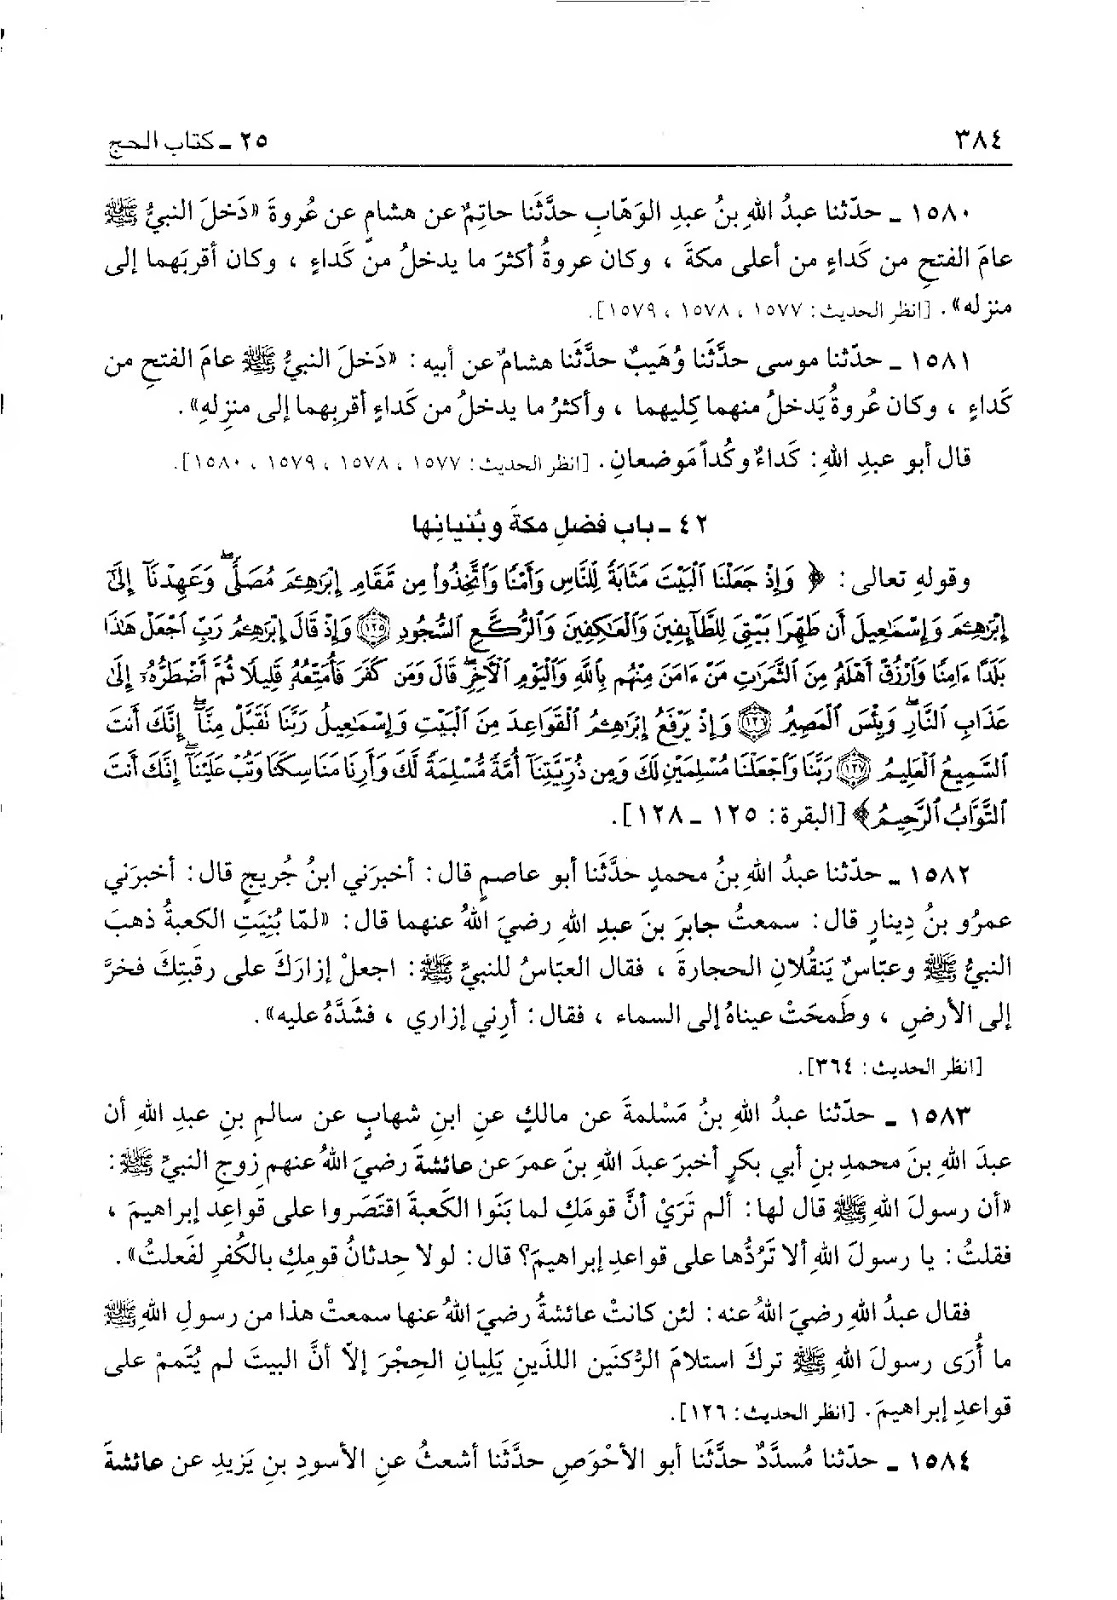 ٣٨٤
٢٥ ـ كتاب الحج
١٥٨٠ ـ حدّثنا عبدُ اللهِ بنُ عبدِ الوَهّابِ حدَّثَنا حاتِمٌ عن هشامٍ عن عُروةَ «دَخلَ النبيُّ ﷺ
عامَ الفتحِ من كَداءٍ من أعلى مكةَ ، وكان عروةُ أكثرَ ما يدخلُ من كَداءٍ ، وكان أقربَهما إلى
منزله». [انظر الحديث: ١٥٧٧ ، ١٥٧٨ ، ١٥٧٩].
١٥٨١ ـ حدّثنا موسى حدَّثَنا وُهَيبٌ حدَّثَنا هشامٌ عن أبيه: «دَخلَ النبيُّ ﷺ عامَ الفتحِ من
كَداءٍ ، وكان عُروةُ يَدخلُ منهما كِليهما ، وأكثرُ ما يدخلُ من كَداءٍ أقربِهما إلى منزِلهِ».
قال أبو عبدِ اللهِ: كَداءٌ وكُداً مَوضعانِ. [انظر الحديث: ١٥٧٧ ، ١٥٧٨ ، ١٥٧٩ ، ١٥٨٠].
٤٢ ـ باب فضلِ مكةَ وبُنيانِها
وقولهِ تعالى: ﴿ وَإِذْ جَعَلْنَا ٱلْبَيْتَ مَثَابَةً لِّلنَّاسِ وَأَمْنًا وَٱتَّخِذُوا۟ مِن مَّقَامِ إِبْرَٰهِـۧمَ مُصَلًّى ۖ وَعَهِدْنَآ إِلَىٰٓ
إِبْرَٰهِـۧمَ وَإِسْمَٰعِيلَ أَن طَهِّرَا بَيْتِىَ لِلطَّآئِفِينَ وَٱلْعَٰكِفِينَ وَٱلرُّكَّعِ ٱلسُّجُودِ ١٢٥ وَإِذْ قَالَ إِبْرَٰهِـۧمُ رَبِّ ٱجْعَلْ هَٰذَا
بَلَدًا ءَامِنًا وَٱرْزُقْ أَهْلَهُۥ مِنَ ٱلثَّمَرَٰتِ مَنْ ءَامَنَ مِنْهُم بِٱللَّهِ وَٱلْيَوْمِ ٱلْءَاخِرِ ۖ قَالَ وَمَن كَفَرَ فَأُمَتِّعُهُۥ قَلِيلًا ثُمَّ أَضْطَرُّهُۥٓ إِلَىٰ
عَذَابِ ٱلنَّارِ ۖ وَبِئْسَ ٱلْمَصِيرُ ١٢٦ وَإِذْ يَرْفَعُ إِبْرَٰهِـۧمُ ٱلْقَوَاعِدَ مِنَ ٱلْبَيْتِ وَإِسْمَٰعِيلُ رَبَّنَا تَقَبَّلْ مِنَّآ ۖ إِنَّكَ أَنتَ
ٱلسَّمِيعُ ٱلْعَلِيمُ ١٢٧ رَبَّنَا وَٱجْعَلْنَا مُسْلِمَيْنِ لَكَ وَمِن ذُرِّيَّتِنَآ أُمَّةً مُّسْلِمَةً لَّكَ وَأَرِنَا مَنَاسِكَنَا وَتُبْ عَلَيْنَآ ۖ إِنَّكَ أَنتَ
ٱلتَّوَّابُ ٱلرَّحِيمُ﴾ [البقرة: ١٢٥ ـ ١٢٨].
١٥٨٢ ـ حدّثنا عبدُ اللهِ بنُ محمدٍ حدَّثَنا أبو عاصمٍ قال: أخبرَني ابنُ جُريجٍ قال: أخبرَني
عمرُو بنُ دِينارٍ قال: سمعتُ جابرَ بنَ عبدِ اللهِ رضيَ اللهُ عنهما قال: «لمّا بُنِيَتِ الكعبةُ ذهبَ
النبيُّ ﷺ وعبّاسٌ يَنقُلانِ الحجارةَ ، فقال العبّاسُ للنبيِّ ﷺ: اجعلْ إزارَكَ على رقبتِكَ فخرَّ
إلى الأرضِ ، وطَمحَتْ عيناهُ إلى السماء ، فقال: أرِني إزاري ، فشَدَّهُ عليه».
[انظر الحديث: ٣٦٤].
١٥٨٣ ـ حدّثنا عبدُ اللهِ بنُ مَسْلمةَ عن مالكٍ عنِ ابنِ شهابٍ عن سالمِ بنِ عبدِ اللهِ أن
عبدَ اللهِ بنَ محمدِ بنِ أبي بكرٍ أخبرَ عبدَ اللهِ بنَ عمرَ عن عائشةَ رضيَ اللهُ عنهم زوجِ النبيِّ ﷺ:
«أن رسولَ اللهِ ﷺ قال لها: ألم تَرَيْ أنَّ قومَكِ لما بَنَوا الكَعبةَ اقتَصَروا على قواعِدِ إبراهيمَ ،
فقلتُ: يا رسولَ اللهِ ألا تَرُدُّها على قواعدِ إبراهيمَ؟ قال: لولا حِدثانُ قومِكِ بالكُفرِ لفَعلتُ».
فقال عبدُ اللهِ رضيَ اللهُ عنه: لئن كانتْ عائشةُ رضيَ اللهُ عنها سمعتْ هذا من رسولِ اللهِ ﷺ
ما أُرَى رسولَ اللهِ ﷺ تركَ استلامَ الرُّكنَينِ اللذَينِ يَلِيانِ الحِجْرَ إلاّ أنَّ البيتَ لم يُتَممْ على
قواعدِ إبراهيمَ. [انظر الحديث: ١٢٦].
١٥٨٤ ـ حدّثنا مُسدَّدٌ حدَّثَنا أبو الأحْوَصِ حدَّثَنا أشعثُ عنِ الأسودِ بنِ يَزيدِ عن عائشةَ